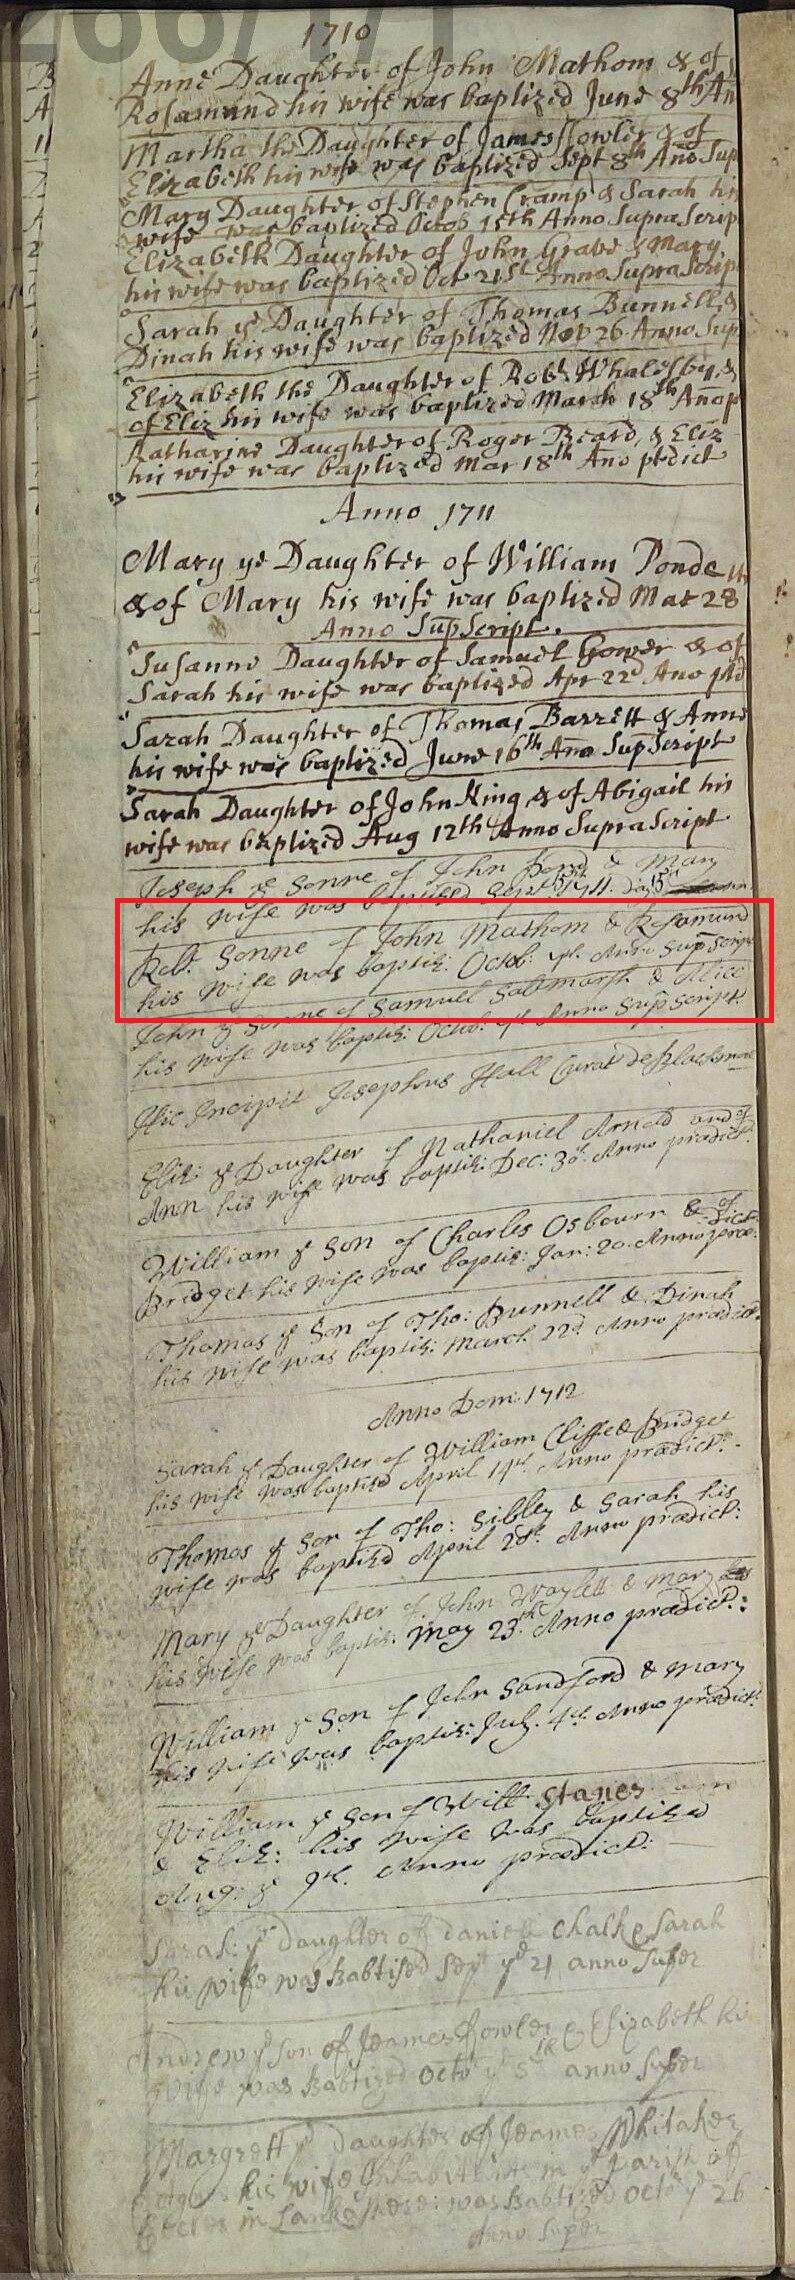 266/1/1
1710
B
A
11
Z
A
2
Anne Daughter of John Mathom & of
Rosamund his wife was baptized June 8th An
Martha the Daughter of James flowler & of
Elizabeth his wife was baptized Sept 8th Ano Sup
Mary Daughter of Stephen Cramp & Sarah his
wife was baptized Octob 15th Anno Supra Scrip
Elizabeth Daughter of John Grave & Mary
his wife was baptized Oct 21st Anno Supra Scrip
Sarah ye Daughter of Thomas Bunnell &
Dinah his wife was baptized Nov 26 Anno Sup
Elizabeth the Daughter of Robt Whalesby &
of Eliz his wife was baptized March 18th Ano p
Katharine Daughter of Roger Beard, & Eliz
his wife was baptized Mar 18th Ano pdict
Anno 1711
Mary ye Daughter of William Ponde
& of Mary his wife was baptized Mar 28
Anno SupScript.
Susanne Daughter of Samuel Gower & of
Sarah his wife was baptized Apr 22d Ano
Sarah Daughter of Thomas Barrett & Anne
his wife was baptized June 16th Ano SupScript
Sarah Daughter of John King & of Abigail his
wife was baptized Aug 12th Anno Supra Script
Joseph ye Sonne of John & Mary
his wife was baptised Sept 1711
Robt. Sonne of John Mathom & Rosamund
his wife was baptiz: Octob: Anno SupScript
John ye Sonne of Samuel Saltmarsh & Alice
his wife was baptiz: Octob. Anno SupScript
Hic Incipit Josephus Hall Curat de
Eliz: ye Daughter of Nathaniel Arnold and of
Ann his wife was baptiz: Dec: 30th. Anno prædict:
William ye Son of Charles Osbourn & of
Bridget his wife was baptiz: Jan: 20. Anno præ:dict:
Thomas ye Son of Tho: Bunnell & Dinah
his wife was baptiz: March 22d. Anno prædict.
Anno Dom: 1712
Sarah ye Daughter of William Cliffe & Bridget
his wife was baptisd April 14th. Anno prædict: -
Thomas ye Son of Tho: Sibley & Sarah his
wife was baptizd April 28th. Anno prædict:
Mary ye Daughter of John Waylett & Mary
his wife was baptiz: May 23th. Anno prædict.:
William ye Son of John Sandford & Mary
his wife was baptiz: July. 4th. Anno prædict:
William ye Son of Will Stanes
& Eliz: his wife was baptized
Aug: ye 9th. Anno prædict:
Sarah: ye daughter of daniell Chalk & Sarah
his wife was Babtised Sept ye 21 anno Super
Andrew ye son of Jeames fowler & Elizabeth his
wife was Babtized octo ye 5th anno Super
Margrett ye daughter of Jeames Whitaker
his wife Inhabitants in ye parish of
Eccles in was Babtized octo ye 26
Anno Super